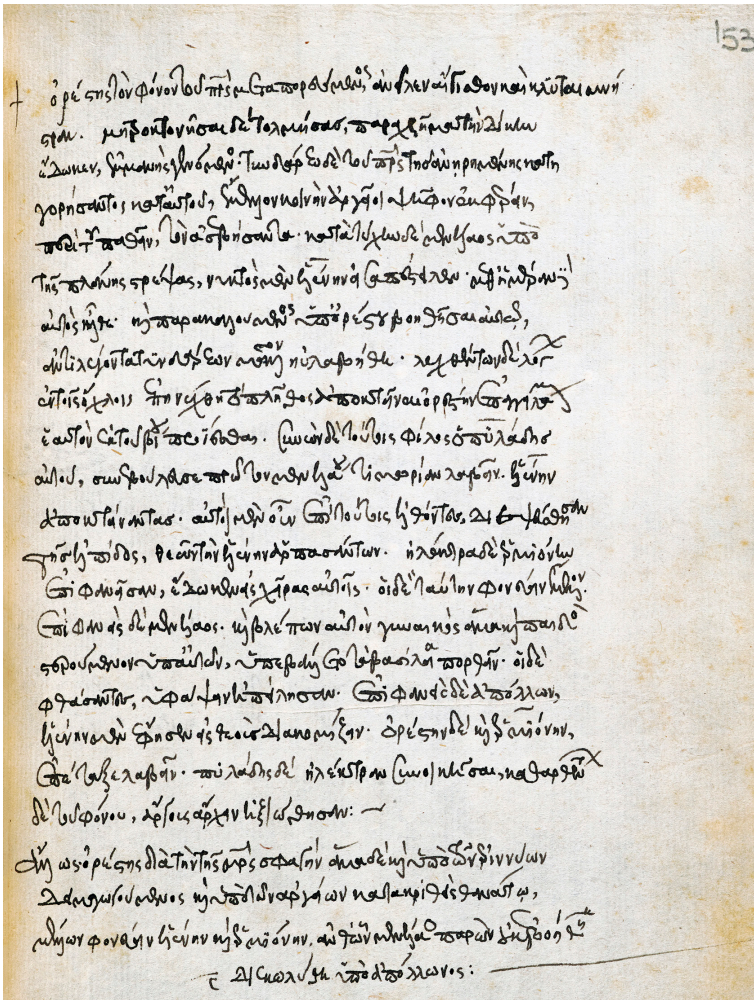 53
ὀρέστης τὸν φόνον τοῦ πρς μεταπορευόμενος ἀνεῖλεν αἴγισθον καὶ κλυταιμνή
στραν. μητροκτονῆσαι δὲ τολμήσας, παραχρῆμα τὴν δίκην
ἔδωκεν, ἐμμανὴς γενόμενος. τυνδάρεω δὲ τοῦ πρς τῆς ἀνῃρημένης κατη
γορήσαντος κατ' αὐτοῦ, ἔμελλον κοινὴν ἀργεῖοι ψῆφον ἐκφέρειν,
περὶ τοῦ τί παθεῖν τὸν ἀσεβήσαντα. κατὰ τύχην δὲ μενέλαος ὑπὸ
τῆς πλάνης στρέψας, νυκτὸς μὲν ἑλένην εἰσαπέστειλεν. μεθ' ἡμέραν δ'
αὐτὸς ἦλθε. καὶ παρακαλούμενος ὑπ' ὀρέστου βοηθῆσαι αὐτῷ,
ἀντιλέγοντα τυνδάρεων μᾶλλον ηὐλαβήθη. λεχθέντων δὲ λόγων
ἐν τοῖς ὄχλοις ἐπηνέχθη τὸ πλῆθος ἀποκτείνειν ὀρέστην ἐπαγγειλάμενος
ἑαυτὸν ἐκ τοῦ βίου προΐεσθαι. συνὼν δὲ τούτοις φίλος ὁ πυλάδης
αὐτοῦ, συνεβούλευσε πρῶτον μενελάου τιμωρίαν λαβεῖν. ἑλένην
ἀποκτείναντας. αὐτοὶ μὲν οὖν ἐπὶ τούτοις ἐλθόντες, διεψεύσθησαν
τῆς ἐλπίδος, θεῶν τὴν ἑλένην ἁρπασάντων. ἠλέκτρα δὲ ἑρμιόνην
ἐπιφανεῖσαν, ἔδωκεν εἰς χεῖρας αὐτοῖς. οἱ δὲ ταύτην φονεύειν ἔμελλον.
ἐπιφανεὶς δὲ μενέλαος. καὶ βλέπων αὐτὸν γυναικὸς ἅμα καὶ παιδὸς
στερούμενον ὑπ' αὐτῶν, ὑπεβάλετο τὰ βασίλεια πορθεῖν. οἱ δὲ
φθάσαντες, ὑφάψειν ἠπείλησαν. ἐπιφανεὶς δὲ ἀπόλλων,
ἑλένην μὲν ἔφησεν εἰς θεοὺς διακομίζειν. ὀρέστην δὲ καὶ ἑρμιόνην,
ἐπέταξε λαβεῖν. πυλάδης δὲ ἠλέκτραν συνοικῆσαι, καθαρθέντι
δὲ τοῦ φόνου, ἄργους ἄρχειν ἠξιώθησαν:
ἄλλως. ὀρέστης διὰ τὴν τῆς μρς σφαγὴν ἅμα δὲ καὶ ὑπὸ τῶν ἐριννύων
δειματούμενος καὶ ὑπὸ τῶν ἀργείων κατακριθεὶς θανάτῳ,
μέλλων φονεύειν ἑλένην καὶ ἑρμιόνην, ἀνθ' ὧν μενέλαος παρὼν οὐκ ἐβοήθησε
διεκωλύθη ὑπὸ ἀπόλλωνος: